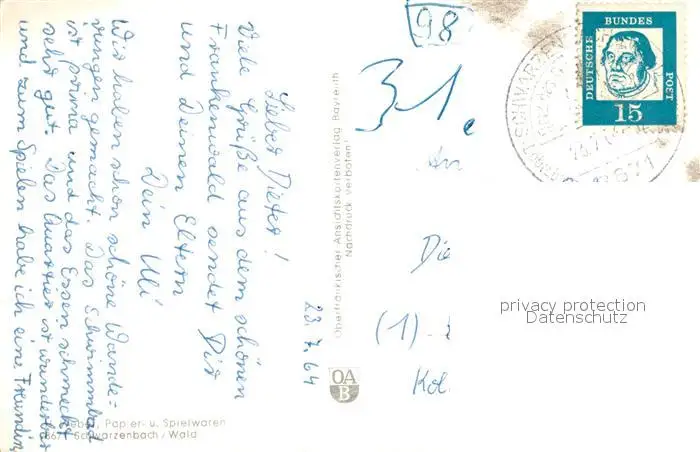 98
31.
DEUTSCHE
BUNDES
POST
15
SCHWARZEN
8671
23.7.64
Lieber Dieter!
Viele Grüße aus dem schönen
Frankenwald sendet Dir
und Deinen Eltern
Dein Uli
Wir haben schon schöne Wande=
rungen gemacht. Das Schwimmbad
ist prima und das Essen schmeckt
sehr gut. Das Quartier ist wunderbar
und zum Spielen habe ich eine Freundin
Oberfränkischer Ansichtskartenverlag Bayreuth
"Nachdruck verboten"
OA
B
An
Die
(1)
Kol
privacy protection
Datenschutz
Papier- u. Spielwaren
Schwarzenbach / Wald